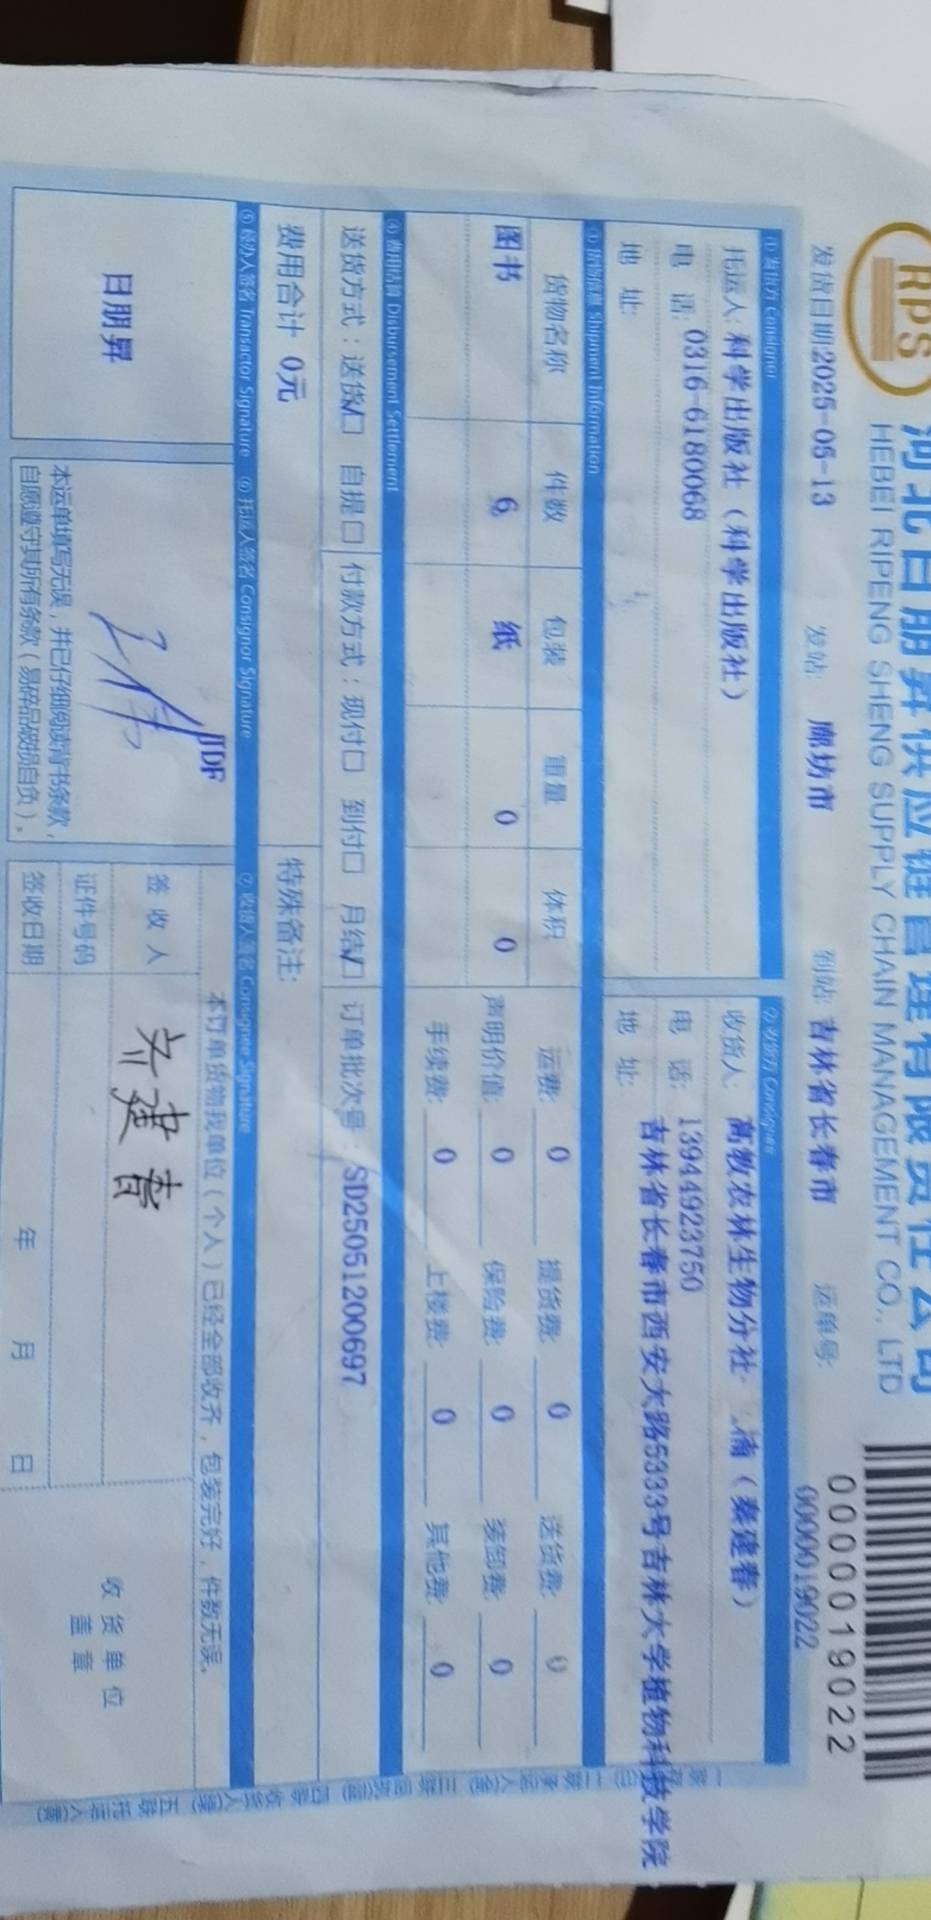 RPS
河北日朋昇供应链管理有限责任公司
HEBEI RIPENG SHENG SUPPLY CHAIN MANAGEMENT CO., LTD
0000019022
发货日期:2025-05-13 发站: 廊坊市 到站: 吉林省长春市 运单号: 0000019022
① 发货方 Consigner ② 收货方 Consignee
托运人: 科学出版社（科学出版社） 收货人: 高教农林生物分社 楠（秦建春）
电 话: 0316-6180068 电 话: 13944923750
地 址: 地 址: 吉林省长春市西安大路5333号吉林大学植物科技学院
③ 货物信息 Shipment Information
货物名称 件数 包装 重量 体积 运费: 0 提货费: 0 送货费: 0
图书 6 纸 0 0 声明价值: 0 保险费: 0 装卸费: 0
手续费: 0 上楼费: 0 其他费: 0
④ 费用结算 Disbursement Settlement
送货方式：送货 自提 付款方式：现付 到付 月结 订单批次号：SD2505120‌0697
费用合计 0元 特殊备注:
⑤ 经办人签名 Transactor Signature ⑥ 托运人签名 Consignor Signature ⑦ 收货人签名 Consignee Signature
本订单货物我单位（个人）已经全部收齐，包装完好，件数无误。
JDF
日朋昇
签 收 人
证件号码
签收日期 年 月 日
收货单位
盖章
本运单填写无误，并已仔细阅读背书条款，
自愿遵守其所有条款（易碎品破损自负）。